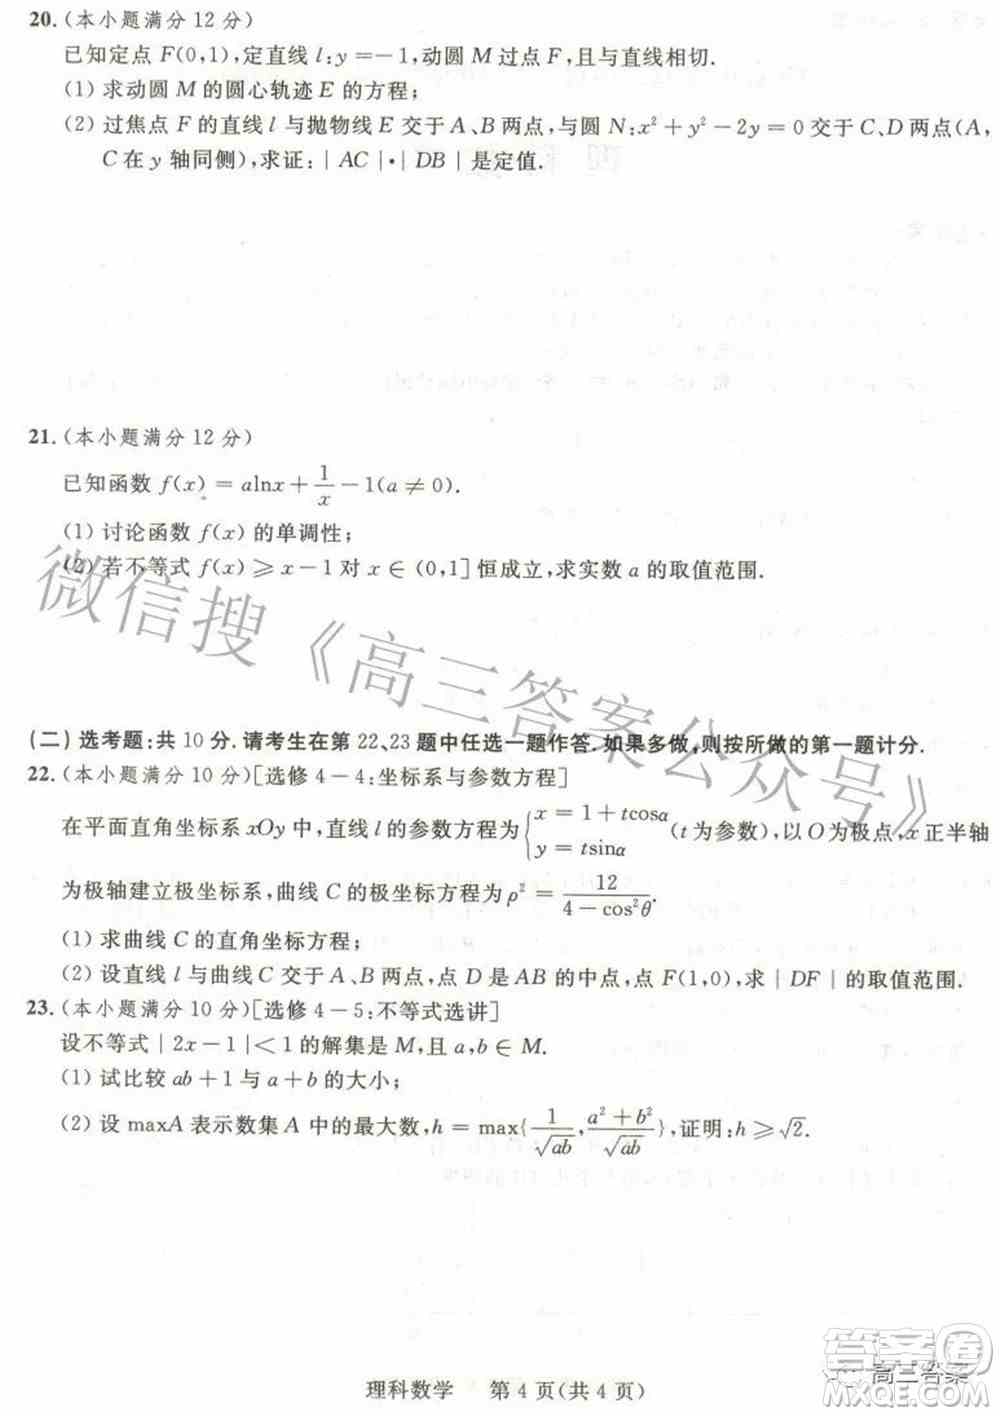 20.(本小题满分12分)
已知定点 F(0,1),定直线 l:y=-1,动圆 M 过点 F,且与直线相切.
(1) 求动圆 M 的圆心轨迹 E 的方程;
(2) 过焦点 F 的直线 l 与抛物线 E 交于 A、B 两点,与圆 N:x²+y²-2y=0 交于 C、D 两点(A,
C 在 y 轴同侧),求证:|AC|·|DB|是定值.
21.(本小题满分12分)
已知函数 f(x)=alnx+1/x-1(a≠0).
(1) 讨论函数 f(x) 的单调性;
(2) 若不等式 f(x)≥x-1 对 x∈(0,1]恒成立,求实数 a 的取值范围.
微信搜《高三答案公众号》
(二) 选考题:共10分.请考生在第22、23题中任选一题作答.如果多做,则按所做的第一题计分.
22.(本小题满分10分)[选修4-4:坐标系与参数方程]
在平面直角坐标系 xOy 中,直线 l 的参数方程为{x=1+tcosα y=tsinα (t为参数),以O为极点,x正半轴
为极轴建立极坐标系,曲线 C 的极坐标方程为 ρ²=12/(4-cos²θ).
(1) 求曲线 C 的直角坐标方程;
(2) 设直线 l 与曲线 C 交于 A、B 两点,点 D 是 AB 的中点,点 F(1,0),求|DF|的取值范围.
23.(本小题满分10分)[选修4-5:不等式选讲]
设不等式|2x-1|<1 的解集是 M,且 a,b∈M.
(1) 试比较 ab+1 与 a+b 的大小;
(2) 设 maxA 表示数集 A 中的最大数,h=max{1/√ab,(a²+b²)/√ab},证明:h≥√2.
理科数学 第4页(共4页)
答案圈
高三答案
MXQE.COM